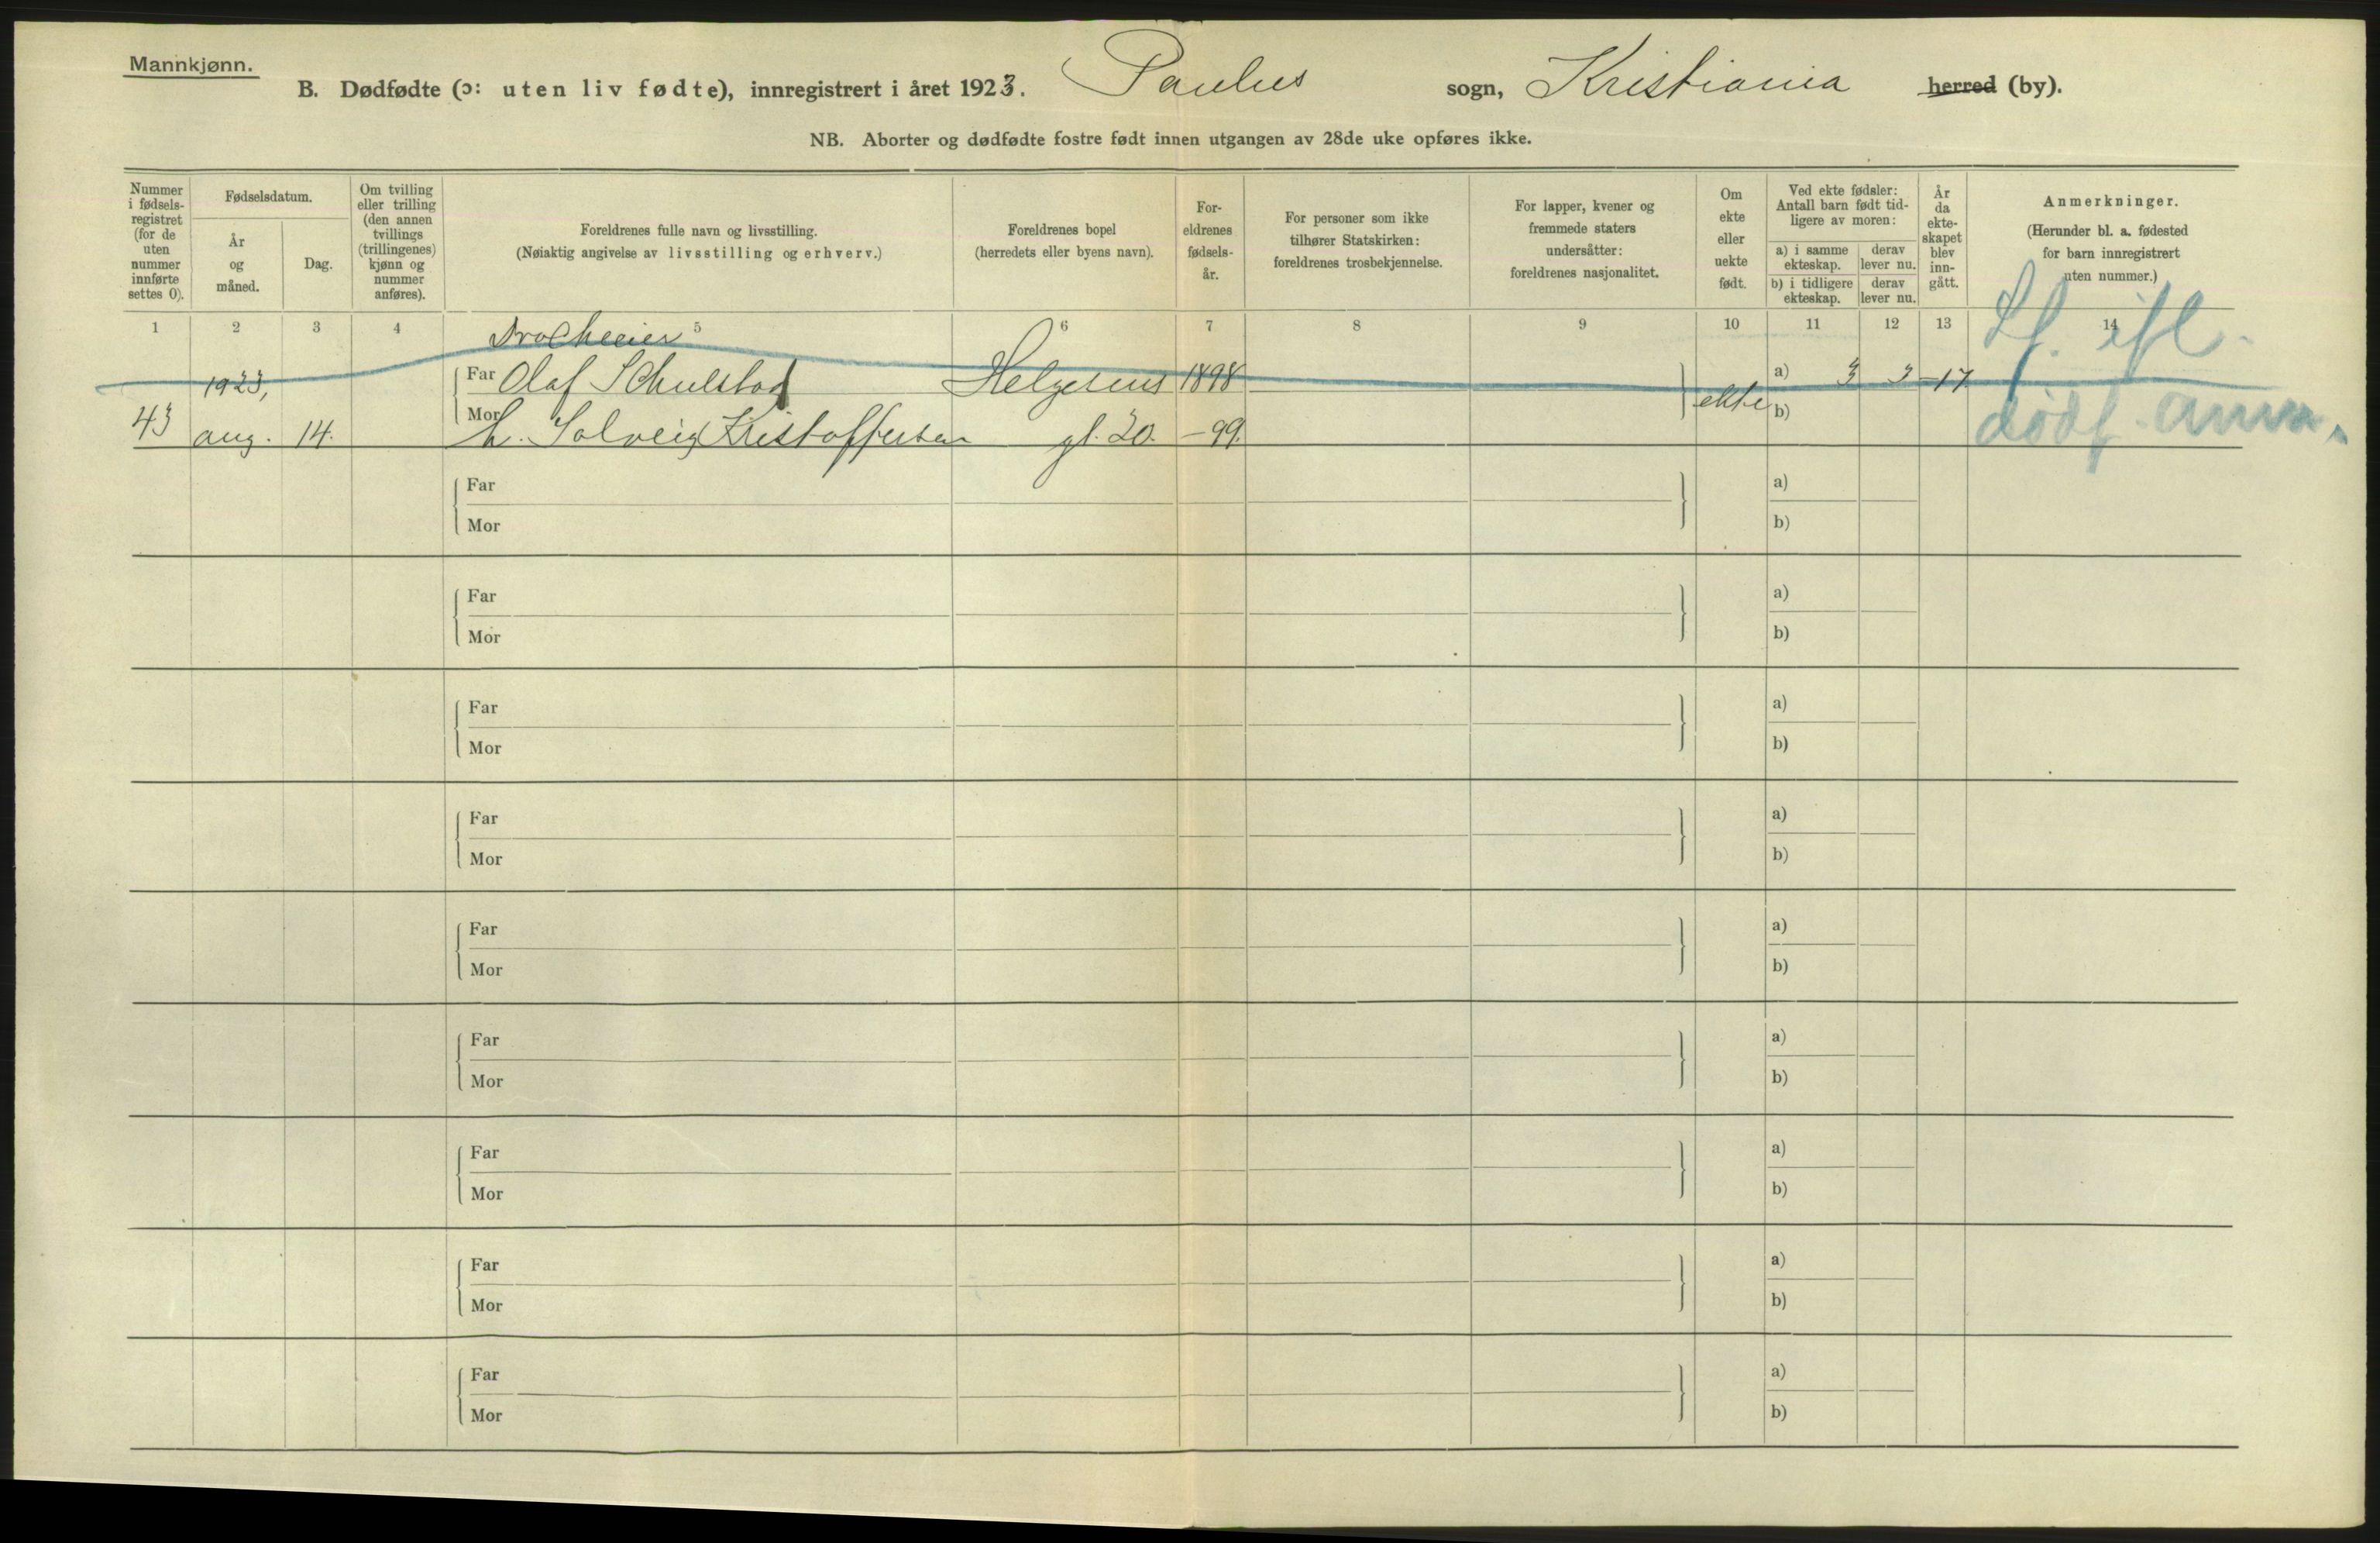 Mannkjønn.
B. Dødfødte (ɔ: uten liv fødte), innregistrert i året 1923. Paulus sogn, Kristiania herred (by).
NB. Aborter og dødfødte fostre født innen utgangen av 28de uke opføres ikke.
Nummer
i fødsels-
registret
(for de
uten
nummer
innførte
settes 0).
Fødselsdatum.
År
og
måned.
Dag.
Om tvilling
eller trilling
(den annen
tvillings
(trillingenes)
kjønn og
nummer
anføres).
Foreldrenes fulle navn og livsstilling.
(Nøiaktig angivelse av livsstilling og erhverv.)
Foreldrenes bopel
(herredets eller byens navn).
For-
eldrenes
fødsels-
år.
For personer som ikke
tilhører Statskirken:
foreldrenes trosbekjennelse.
For lapper, kvener og
fremmede staters
undersåtter:
foreldrenes nasjonalitet.
Om
ekte
eller
uekte
født.
Ved ekte fødsler:
Antall barn født tid-
ligere av moren:
a) i samme
ekteskap.
derav
lever nu.
b) i tidligere
ekteskap.
derav
lever nu.
År
da
ekte-
skapet
blev
inn-
gått.
Anmerkninger.
(Herunder bl. a. fødested
for barn innregistrert
uten nummer.)
1 2 3 4 5 6 7 8 9 10 11 12 13 14
1923, Far Olaf Schulstad Helgesens 1898 a) 3 3 -17
43 aug. 14. Mor h. Solveig Kristoffersen gt. 20. -99. ekte b)
dødf.
Far a)
Mor b)
Far a)
Mor b)
Far a)
Mor b)
Far a)
Mor b)
Far a)
Mor b)
Far a)
Mor b)
Far a)
Mor b)
Far a)
Mor b)
Far a)
Mor b)